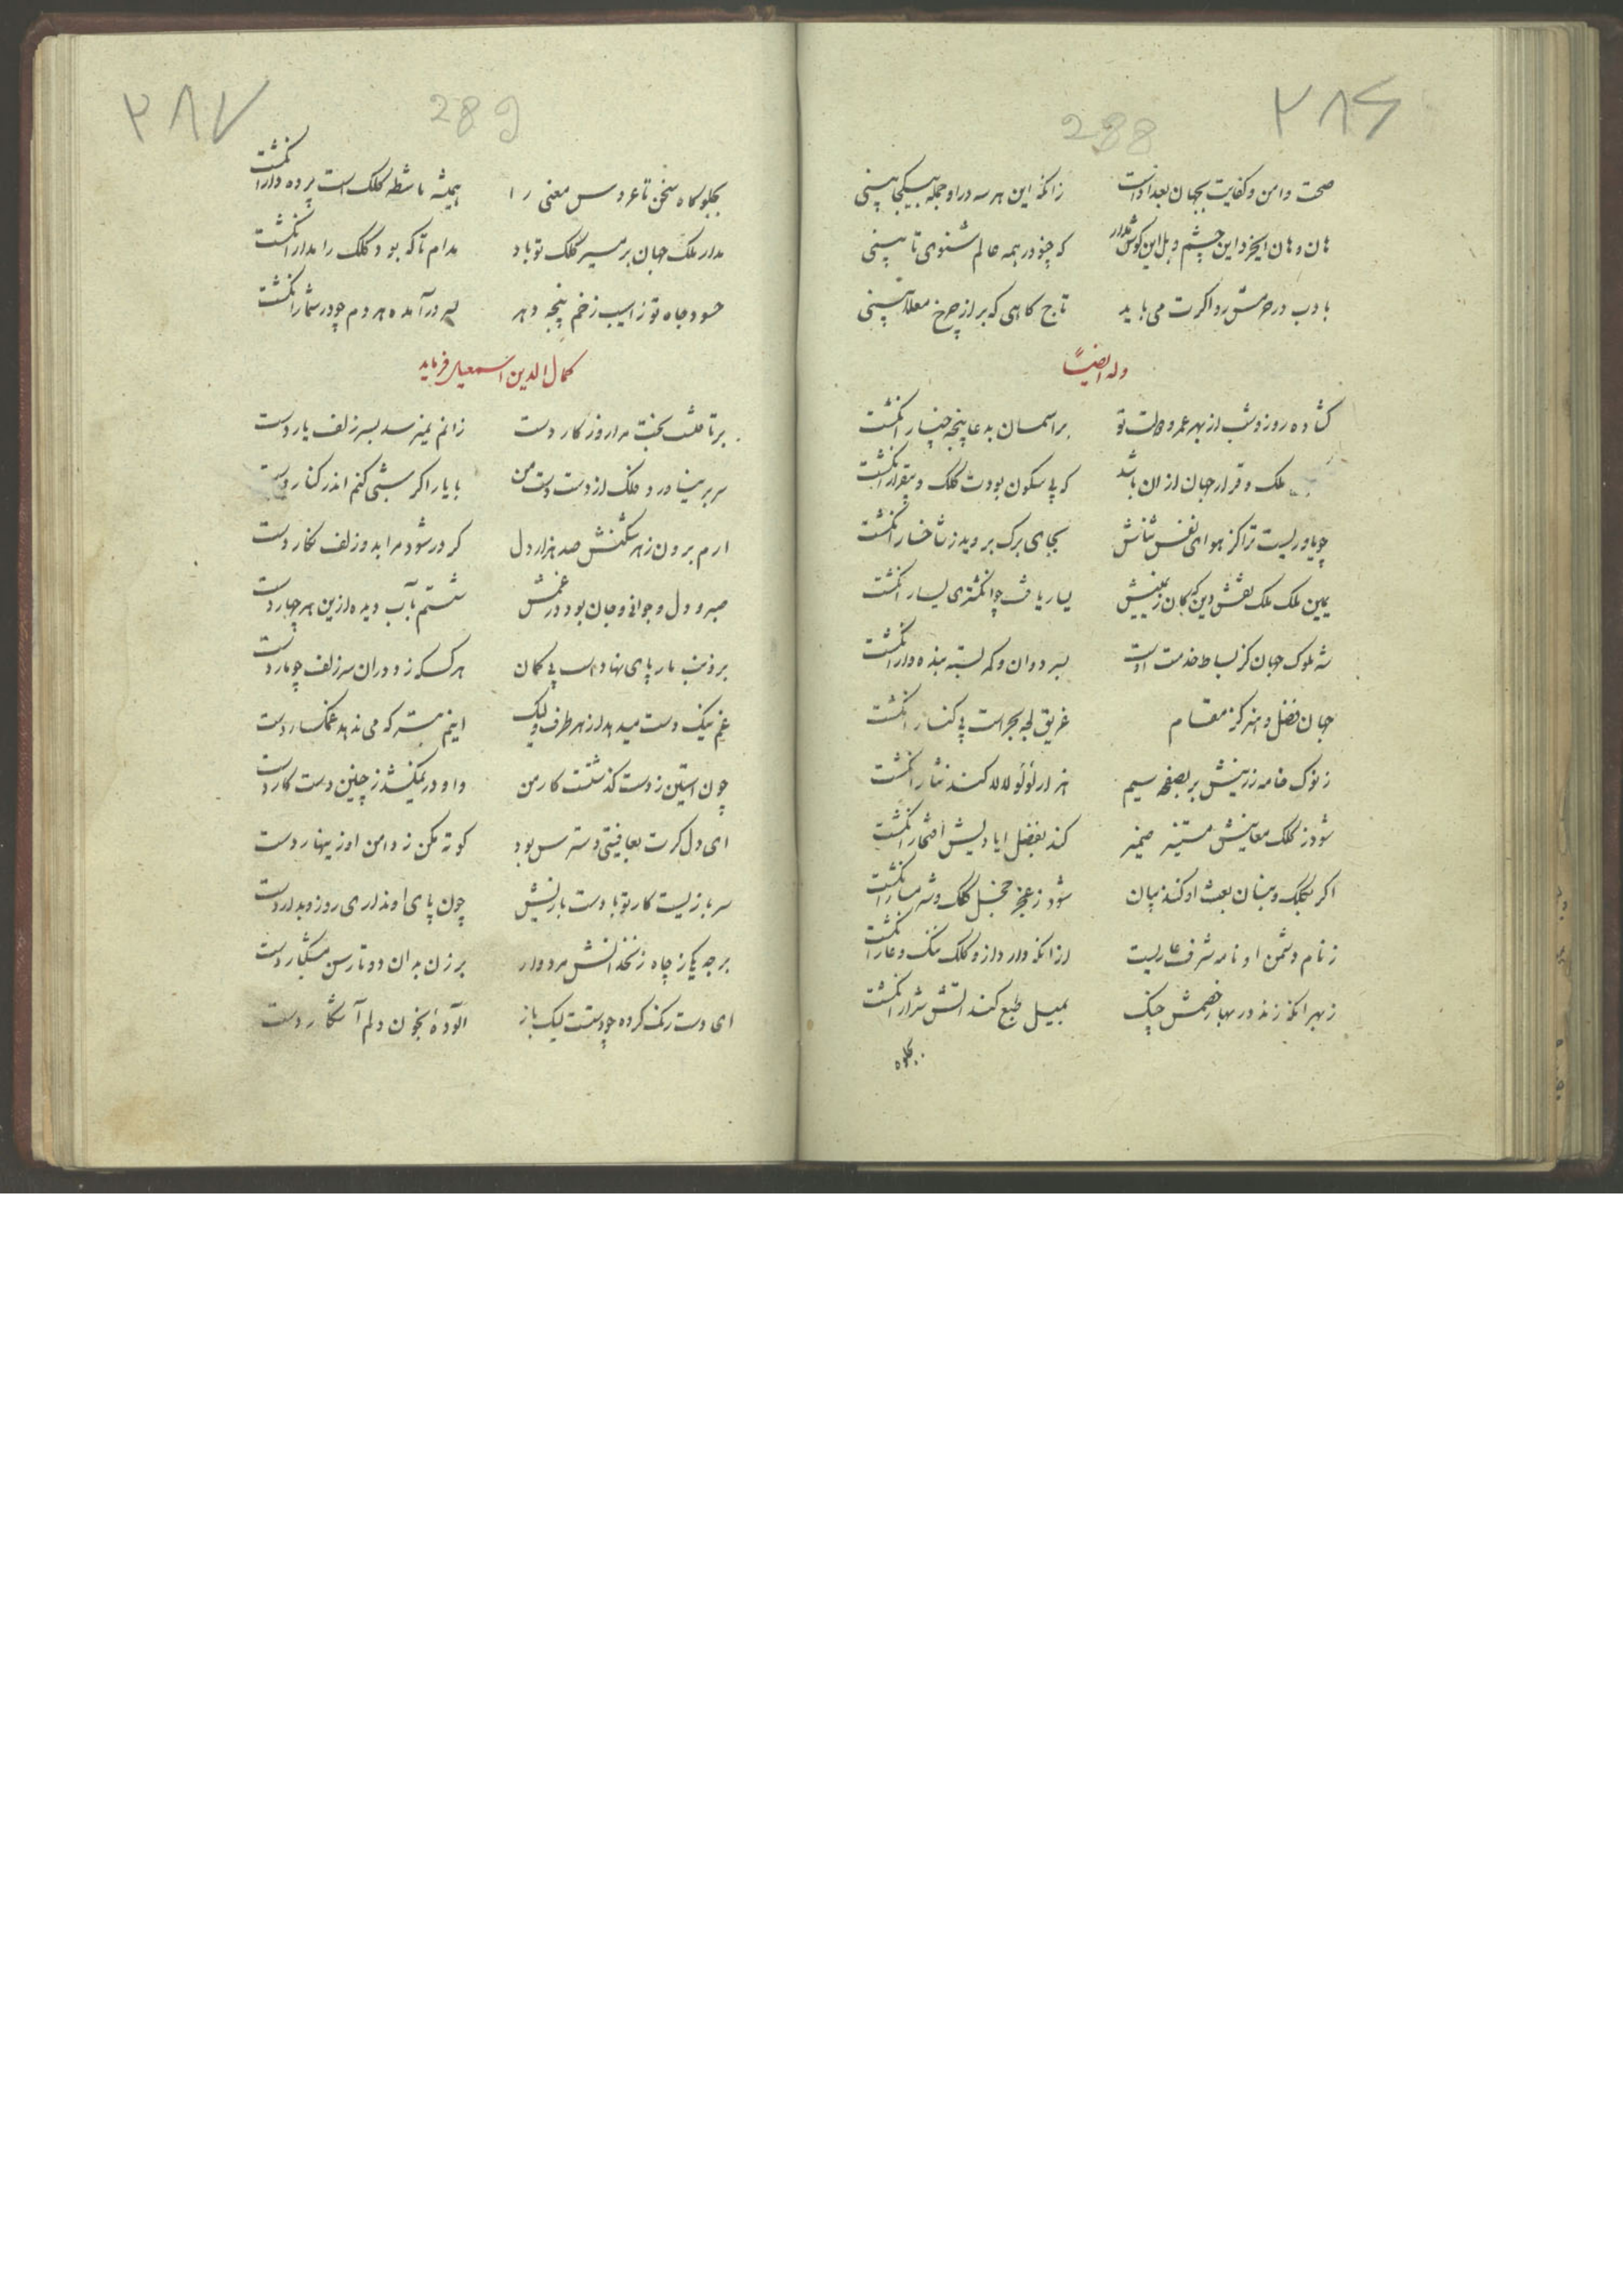 ۲۸۶
288
صحت و امن و کفایت بجهان بعد ادات زانکه این هر سه در او جمله بیکجا بینی
هان و هان ایخرد این چشم و بل این کوش بدار که چنو در همه عالم شنوی تا بینی
با دب در حرمتش رو اکرت می باید تاج کاهی که بر از چرخ معلا بینی
وله ایضاً
کشاده روز و شب از بهر عمر و دولت تو بر آسمان بدعا پنجه چنار انکشت
ملک و قرار جهان از ان باشد که بی سکون بودت کلک و بیقرار انکشت
چو یاوریست ترا کز هوای نفس بنانش بجای برک بروید ز شاخسار انکشت
یمین ملک ملک نقش دین که کان ز یمینش یسار یافت چو انکشتری یسار انکشت
شه ملوک جهان کز بساط خدمت اوست بسر دوان و کمر بسته بنده وار انکشت
جهان فضل و هنر کز مقام غریق لجه بحر است بی کنار انکشت
ز نوک خامه زرینش بر صفحه سیم هزار لؤلؤ لالا کند نثار انکشت
شود ز کلک معانیش مستنیر ضمیر کند بفضل ایادیش افتخار انکشت
اکر بکلک و بنان بعث او کند بیان شود ز عجز خجل کلک و شرمسار انکشت
ز نام دشمن او نامه شرف عاریست از انکه دارد ازو کلک ننک و عار انکشت
ز بهر انکه زند در بهار خصمش چنک بمیل طبع کند آتش شرار انکشت
بجلوه
۲۸۷
289
بجلوکاه سخن تا عروس معنی را همیشه ماشطه کلک است پرده دار انکشت
مدار ملک جهان بر مسیر کلک تو باد مدام تا که بود کلک را مدار انکشت
حسود جاه تو ز اسیب زخم پنجه دهر بسر در آمده هر دم چو در شمار انکشت
کمال الدین اسمعیل فرماید
برتافتست بخت مرا روزکار دست زانم نمیرسد بسر زلف یار دست
سر بر نیاورد فلک از دست دست من با یار اکر شبی کنم اندر کنار دست
ارم برون ز هر شکنش صد هزار دل کر در شود مرا بدو زلف نکار دست
صبر و دل و جوانی و جان بود در غمش شستم بآب دیده ازین هر چهار دست
بر ذنب مار پای نهادست بی کمان هر کسکه زد در ان سر زلف چو مار دست
غم نیک دست میدهد از هر طرف ولیک اینم بتر که می ندهد غمکسار دست
چون استین ز دست کذشتست کار من وا و در نمیکشد ز چنین دست کار دست
ای دل کرت بعافیتی دسترس بود کوته مکن ز دامن او زینهار دست
سربازیست کار تو با دست بازیش چون پای او نداری رو زو بدار دست
برجه یکی ز چاه زنخدانش مردوار بر زن بدان دو تا رسن مشکبار دست
ای دست رنک کرده چو دستت لیک باز آلوده بخون دلم آشکار دست